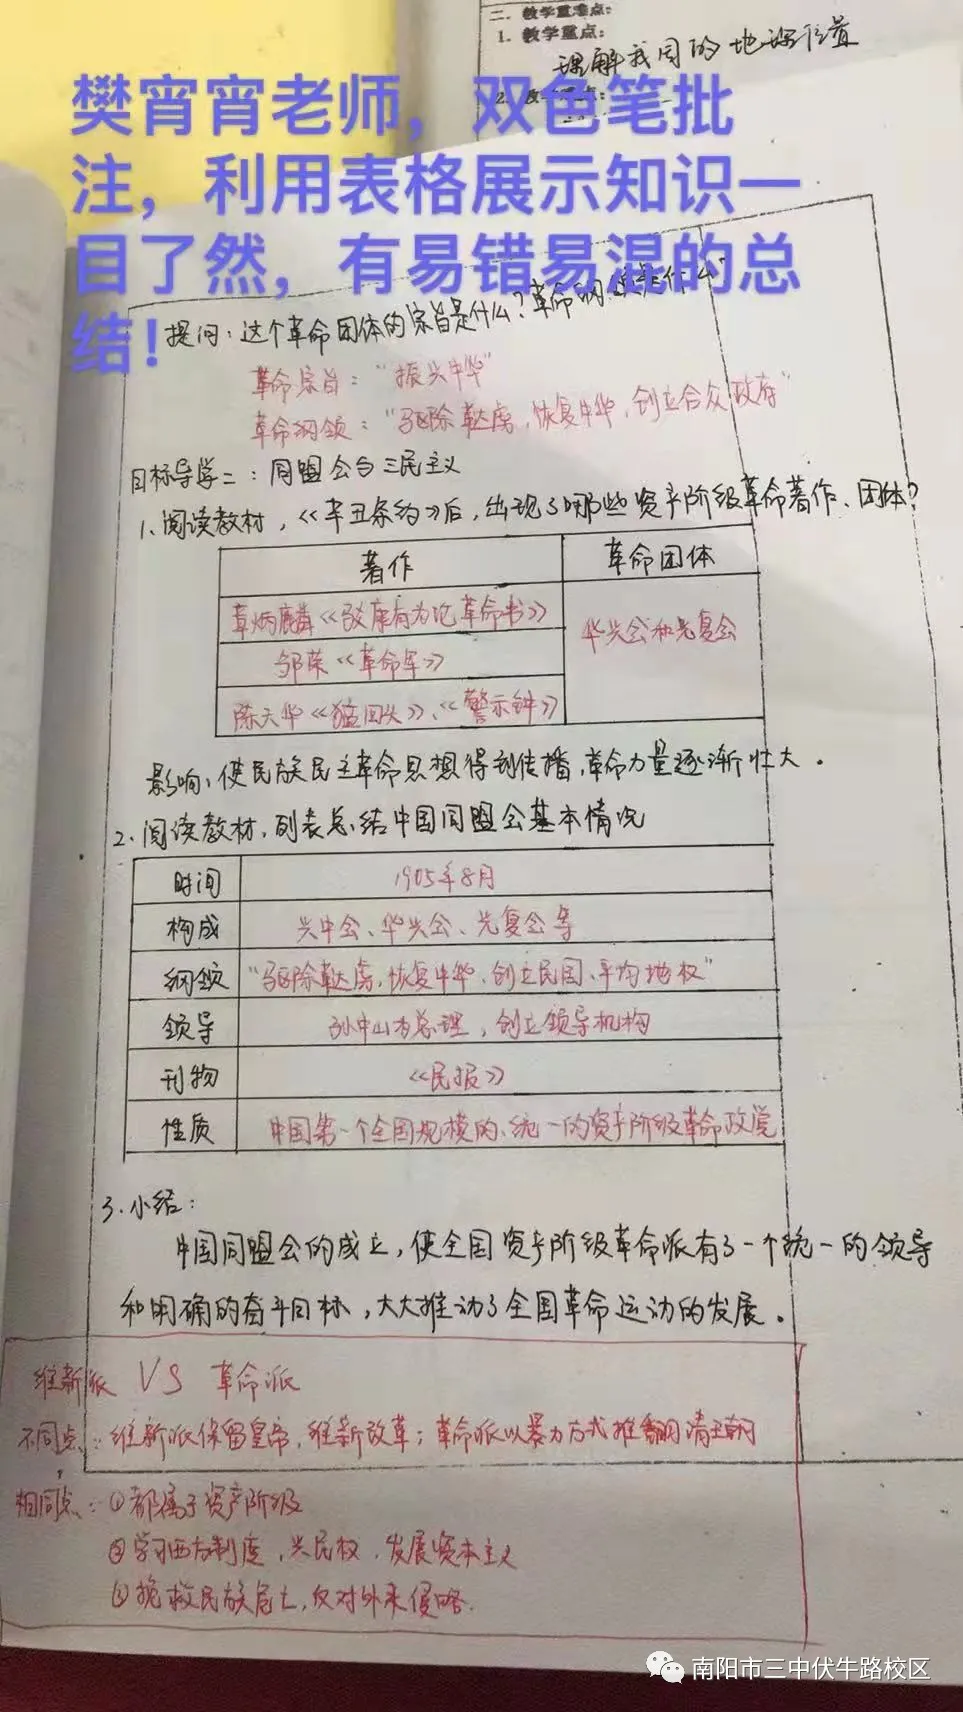 二、教学重难点:
1. 教学重点:
理解我国的地理位置
樊宵宵老师，双色笔批
注，利用表格展示知识一
目了然，有易错易混的总
结！
提问：这个革命团体的宗旨是什么？革命纲领是什么？
革命宗旨：“振兴中华”
革命纲领：“驱除鞑虏，恢复中华，创立合众政府”
目标导学二：同盟会与三民主义
1、阅读教材，《辛丑条约》后，出现了哪些资产阶级革命著作、团体？
著作 革命团体
章炳麟《驳康有为论革命书》
华兴会和光复会
邹荣《革命军》
陈天华《猛回头》、《警示钟》
影响：使民族民主革命思想得到传播，革命力量逐渐壮大。
2、阅读教材，列表总结中国同盟会基本情况
时间 1905年8月
构成 兴中会、华兴会、光复会等
纲领 “驱除鞑虏，恢复中华，创立民国、平均地权”
领导 孙中山为总理，创立领导机构
刊物 《民报》
性质 中国第一个全国规模的、统一的资产阶级革命政党
3.小结：
中国同盟会的成立，使全国资产阶级革命派有了一个统一的领导
和明确的奋斗目标，大大推动了全国革命运动的发展。
维新派 VS 革命派
不同点：维新派保留皇帝，维新改革；革命派以暴力方式推翻清王朝
相同点：①都属于资产阶级
②学习西方制度，兴民权，发展资本主义
③挽救民族危亡，反对外来侵略.
南阳市三中伏牛路校区